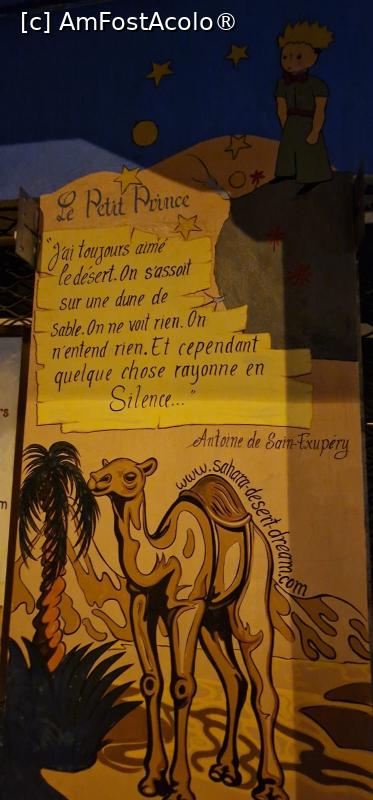 [c] AmFostAcolo®
Le Petit Prince
"J'ai toujours aimé
le désert. On s'assoit
sur une dune de
sable. On ne voit rien. On
n'entend rien. Et cependant
quelque chose rayonne en
Silence..."
Antoine de Sain-Exupéry
www.sahara-desert-dream.com